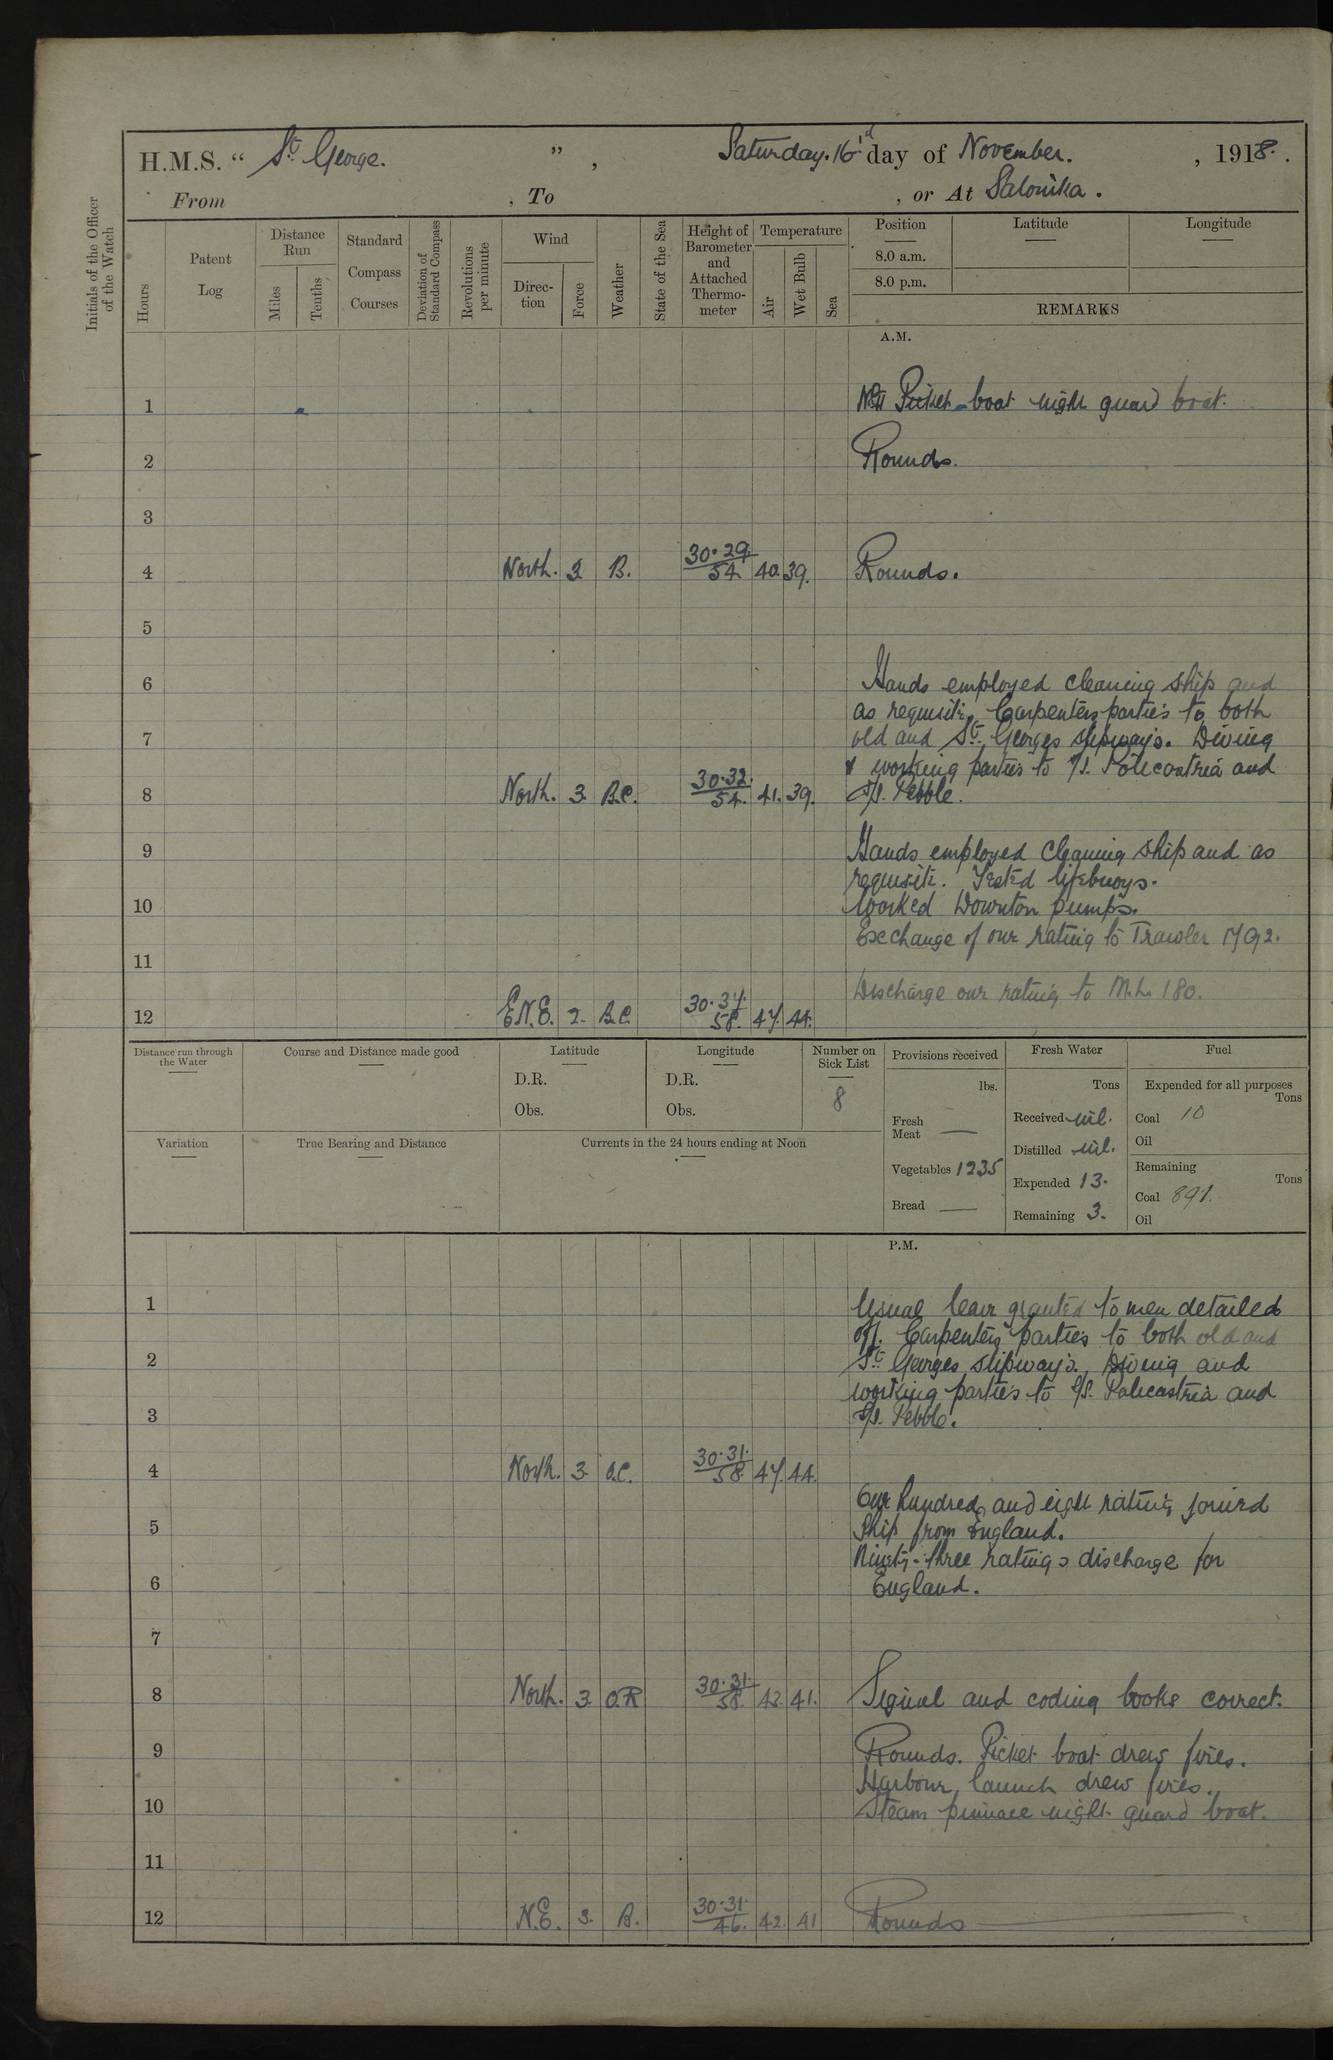 H.M.S. “ St. George. ” , Saturday. 16 day of November. , 1918.
From , To , or At Salonika.
Initials of the Officer of the Watch
Hours
Patent Log
Distance Run
Miles
Tenths
Standard Compass Courses
Deviation of Standard Compass
Revolutions per minute
Wind
Direc-tion
Force
Weather
State of the Sea
Height of Barometer and Attached Thermo-meter
Temperature
Air
Wet Bulb
Sea
Position Latitude Longitude
8.0 a.m.
8.0 p.m.
REMARKS
A.M.
1 Picket boat night guard boat.
2 Rounds.
3
4 North. 3 B. 30.29 54 40. 39. Rounds.
5
6 Hands employed cleaning ship and
as requisite, Carpenters parties to both
7 old and St. Georges slipways. Diving
& working parties to S/S. Policastria and
8 North. 3. B.C. 30.32. 54. 41. 39. S/S. Pebble.
9 Hands employed cleaning ship and as
requisite. Tested lifebuoys.
10 Worked Downton pumps.
Exchange of our rating to Trawler
11
Discharge our rating to M.L. 180.
12 E.N.E. 2. B.C. 30.34. 58. 47. 44.
Distance run through the Water
Course and Distance made good
Latitude
D.R.
Obs.
Longitude
D.R.
Obs.
Number on Sick List
8
Provisions received
lbs.
Fresh Meat —
Vegetables 1235
Bread —
Fresh Water
Tons
Received nil.
Distilled nil.
Expended 13.
Remaining 3.
Fuel
Expended for all purposes
Tons
Coal 10
Oil
Remaining
Tons
Coal 891.
Oil
Variation
True Bearing and Distance
Currents in the 24 hours ending at Noon
P.M.
1 Usual leave granted to men detailed
off. Carpenters parties to both old and
2 St. Georges slipways. Diving and
working parties to S/S. Policastria and
3 S/S. Pebble.
4 North. 3. O.C. 30.31. 58 47. 44.
One hundred and eight ratings joined
5 Ship from England.
Ninety-three ratings discharge for
6 England.
7
8 North. 3 O.R 30.31. 58. 42. 41. Signal and coding books correct.
9 Rounds. Picket boat drew fires.
Harbour launch drew fires.
10 Steam pinnace night guard boat.
11
12 N.E. 3. B. 30.31. 46. 42. 41 Rounds